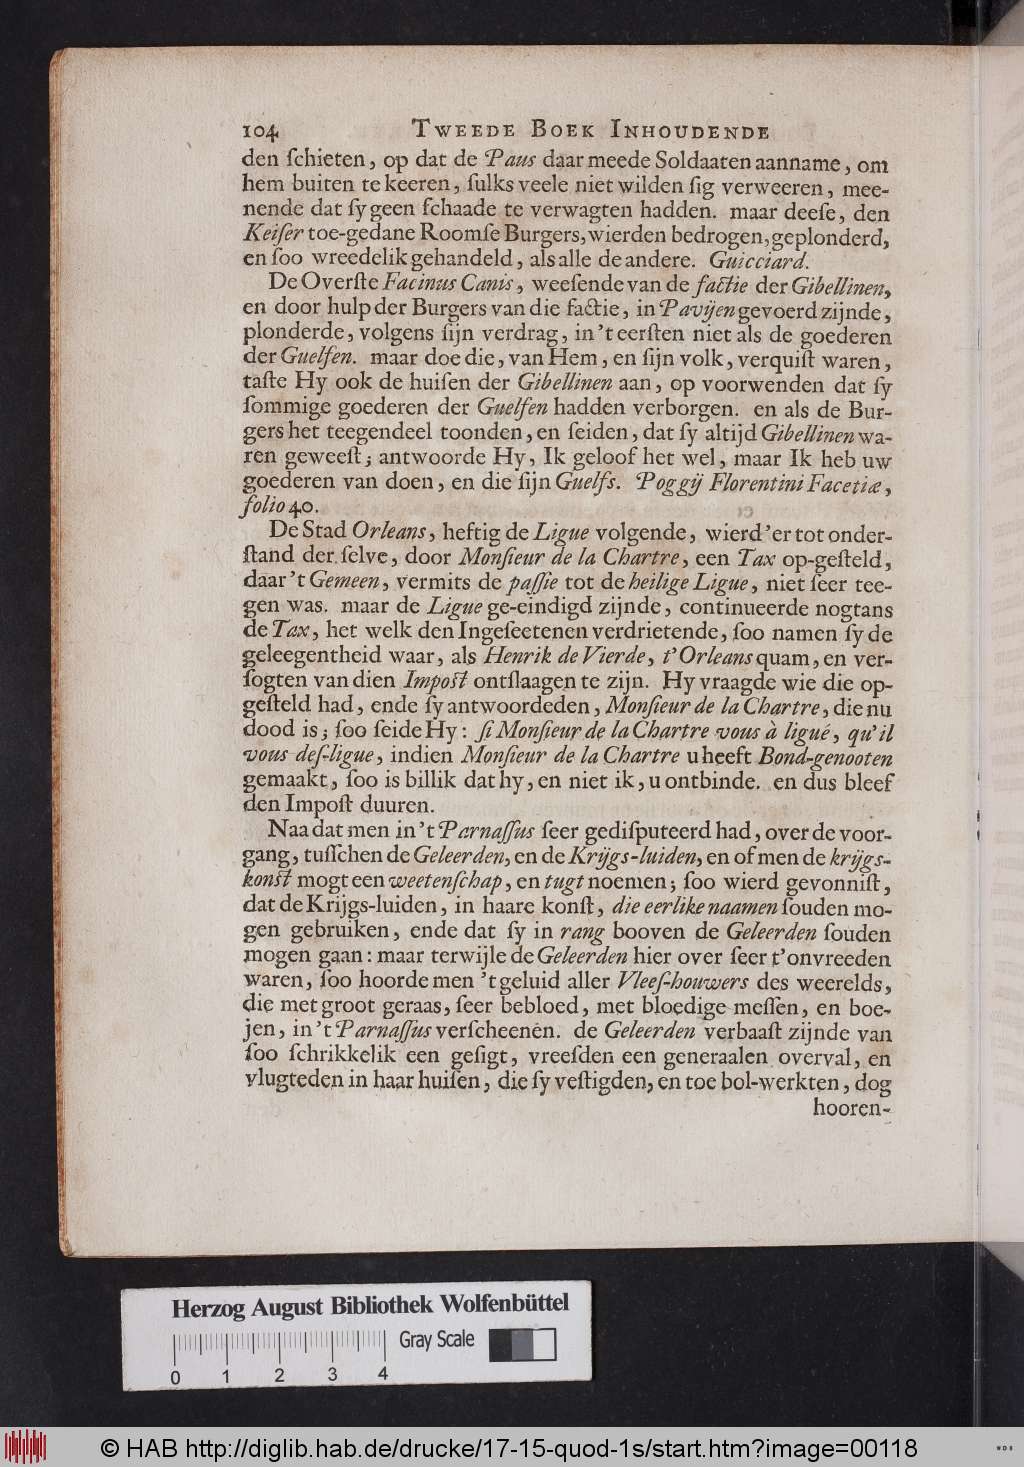 104 TWEEDE BOEK INHOUDENDE
den ſchieten, op dat de Paus daar meede Soldaaten aanname, om
hem buiten te keeren, ſulks veele niet wilden ſig verweeren, mee-
nende dat ſy geen ſchaade te verwagten hadden. maar deeſe, den
Keiſer toe-gedane Roomſe Burgers, wierden bedrogen, geplonderd,
en ſoo wreedelik gehandeld, als alle de andere. Guicciard.
De Overſte Facinus Canis, weeſende van de factie der Gibellinen,
en door hulp der Burgers van die factie, in Pavijen gevoerd zijnde,
plonderde, volgens ſijn verdrag, in 't eerſten niet als de goederen
der Guelfen. maar doe die, van Hem, en ſijn volk, verquiſt waren,
taſte Hy ook de huiſen der Gibellinen aan, op voorwenden dat ſy
ſommige goederen der Guelfen hadden verborgen. en als de Bur-
gers het teegendeel toonden, en ſeiden, dat ſy altijd Gibellinen wa-
ren geweeſt; antwoorde Hy, Ik geloof het wel, maar Ik heb uw
goederen van doen, en die ſijn Guelfs. Poggij Florentini Facetiæ,
folio 40.
De Stad Orleans, heftig de Ligue volgende, wierd 'er tot onder-
ſtand der ſelve, door Monſieur de la Chartre, een Tax op-geſteld,
daar 't Gemeen, vermits de paſſie tot de heilige Ligue, niet ſeer tee-
gen was. maar de Ligue ge-eindigd zijnde, continueerde nogtans
de Tax, het welk den Ingeſeetenen verdrietende, ſoo namen ſy de
geleegentheid waar, als Henrik de Vierde, t'Orleans quam, en ver-
ſogten van dien Impoſt ontſlaagen te zijn. Hy vraagde wie die op-
geſteld had, ende ſy antwoordeden, Monſieur de la Chartre, die nu
dood is; ſoo ſeide Hy: ſi Monſieur de la Chartre vous à ligué, qu'il
vous deſ-ligue, indien Monſieur de la Chartre u heeft Bond-genooten
gemaakt, ſoo is billik dat hy, en niet ik, u ontbinde. en dus bleef
den Impoſt duuren.
Naa dat men in 't Parnaſſus ſeer gediſputeerd had, over de voor-
gang, tuſſchen de Geleerden, en de Krijgs-luiden, en of men de krijgs-
konſt mogt een weetenſchap, en tugt noemen; ſoo wierd gevonniſt,
dat de Krijgs-luiden, in haare konſt, die eerlike naamen ſouden mo-
gen gebruiken, ende dat ſy in rang booven de Geleerden ſouden
mogen gaan: maar terwijle de Geleerden hier over ſeer t'onvreeden
waren, ſoo hoorde men 't geluid aller Vleeſ-houwers des weerelds,
die met groot geraas, ſeer bebloed, met bloedige meſſen, en boe-
jen, in 't Parnaſſus verſcheenen. de Geleerden verbaaſt zijnde van
ſoo ſchrikkelik een geſigt, vreeſden een generaalen overval, en
vlugteden in haar huiſen, die ſy veſtigden, en toe bol-werkten, dog
hooren-
Herzog August Bibliothek Wolfenbüttel
Gray Scale
0 1 2 3 4
© HAB http://diglib.hab.de/drucke/17-15-quod-1s/start.htm?image=00118